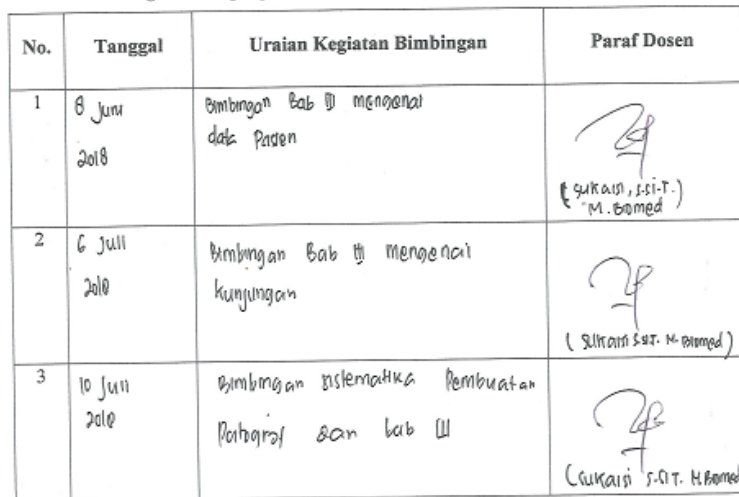 No. Tanggal Uraian Kegiatan Bimbingan Paraf Dosen
1 8 Juni Bimbingan Bab III mengenai
2018 data Pasien
(Sukaisi, S.Si.T.
M.Biomed)
2 6 Juli Bimbingan Bab III mengenai
2018 kunjungan
(Sukaisi S.SiT. M.Biomed)
3 10 Juli Bimbingan sistematika Pembuatan
2018 Partograf dan bab III
(Sukaisi S.SiT. M.Biomed